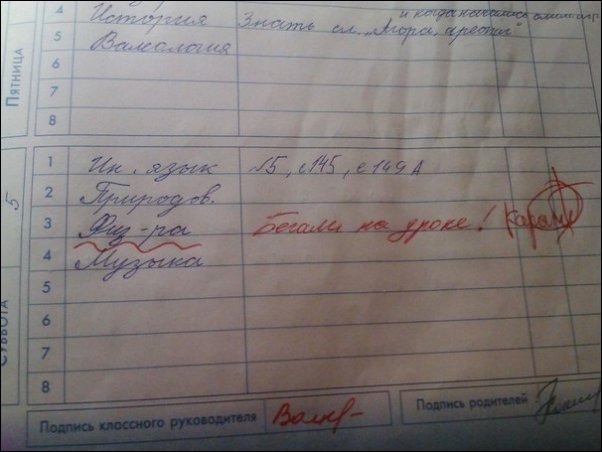 и когда начались
4 История Знать сл. „Агора, ареопаг"
5 Валеология
6
7
8
ПЯТНИЦА
1 Ин. язык №5, с 145, с 149 А
2 Природов.
3 Физ-ра Бегали на уроке!
4 Музыка
5
6
7
8
5
СУББОТА
Подпись классного руководителя
Подпись родителей